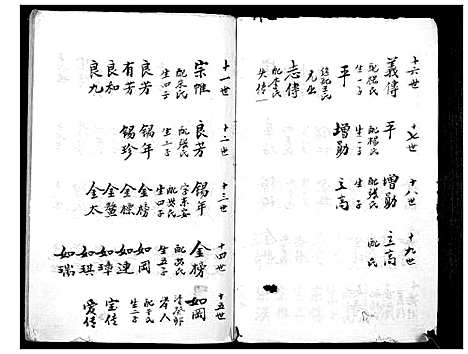 十六世
義傳
配楊氏
生一子
平
繼配王氏
志傳
配李氏
失傳
十七世
平
配楊氏
生一子
增勛
十八世
增勛
配張氏
生一子
立高
十九世
立高
配 氏
十一世
宗惟
配朱氏
生四子
良芳
有芳
良和
良九
十二世
良芳
配張氏
生二子
錫年
錫珍
十三世
錫年
字東安
配洪氏
生四子
金榜
金標
金鰲
金太
十四世
金榜
配 氏
生五子
如岡
如連
如璋
如琪
如瑞
十五世
如岡
清癸卯
舉人
配于氏
生二子
宝传
愛传